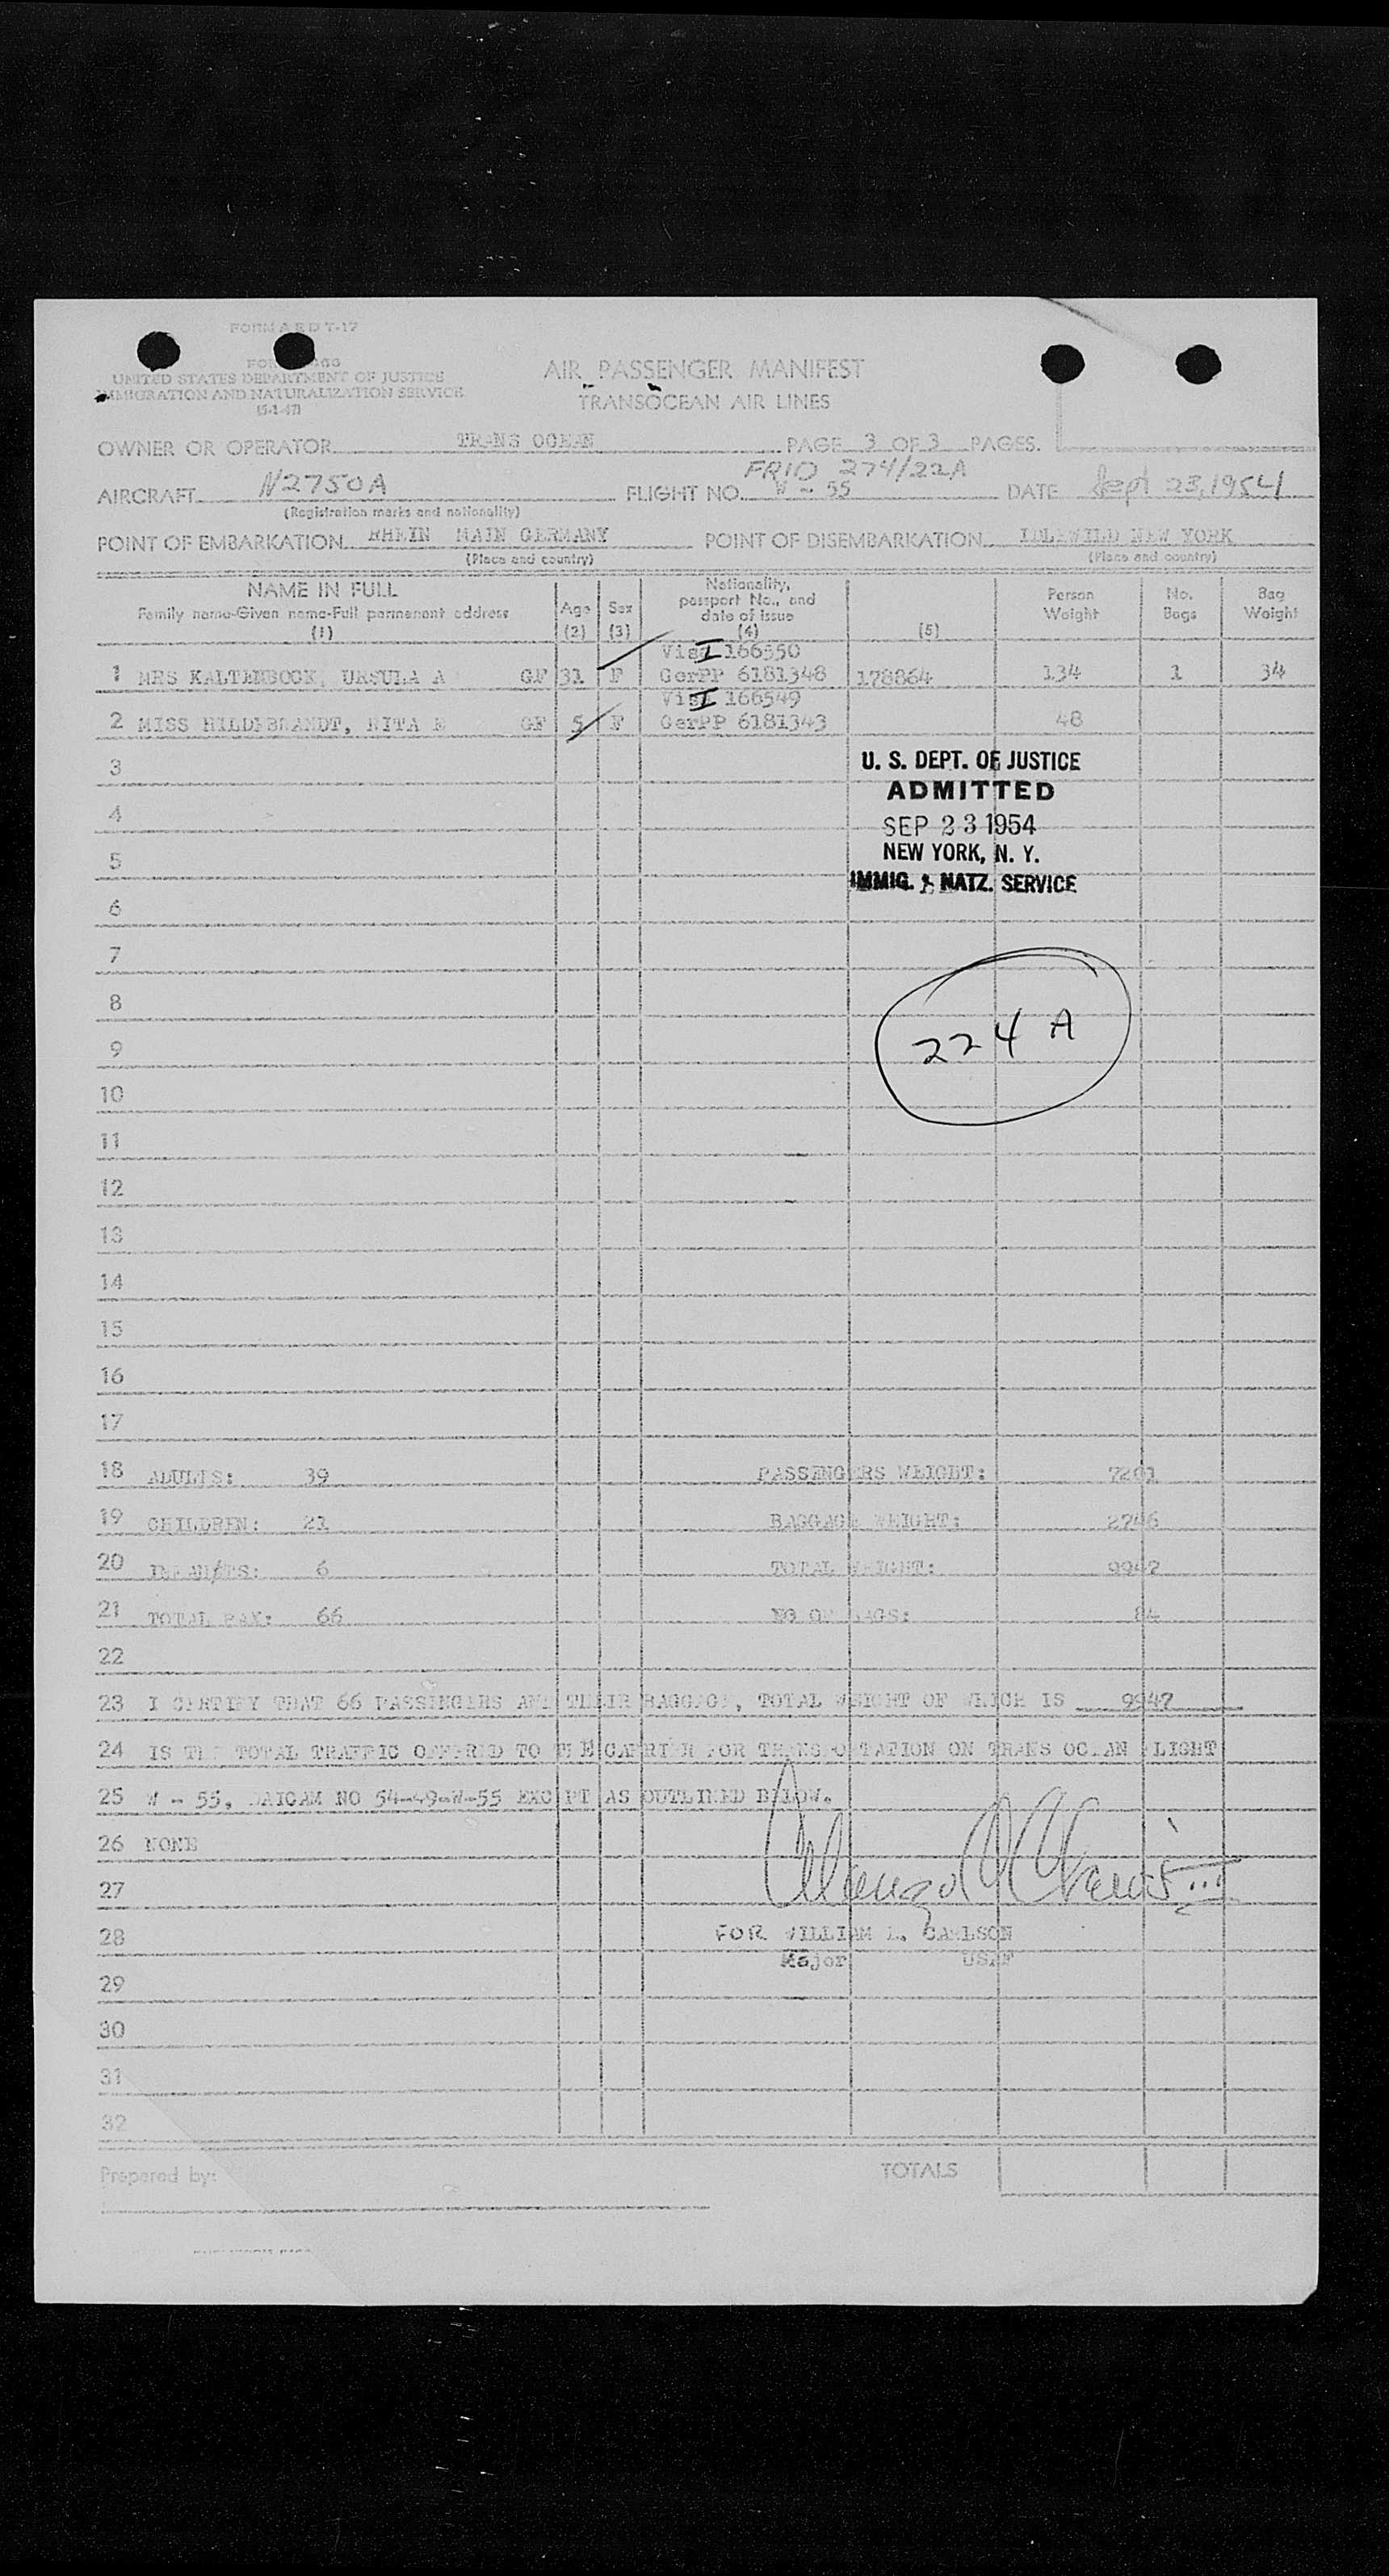 FORM A E D T-17
UNITED STATES DEPARTMENT OF JUSTICE
IMMIGRATION AND NATURALIZATION SERVICE
(5-1-47)
AIR PASSENGER MANIFEST
TRANSOCEAN AIR LINES
OWNER OR OPERATOR TRANS OCEAN PAGE 3 OF 3 PAGES.
FRIO 274/22A
AIRCRAFT N2750A FLIGHT NO. W - 55 DATE Sept 23, 1954
(Registration marks and nationality)
POINT OF EMBARKATION RHEIN MAIN GERMANY POINT OF DISEMBARKATION IDLEWILD NEW YORK
(Place and country) (Place and country)
NAME IN FULL
Family name-Given name-Full permanent address
(1)
Age
(2)
Sex
(3)
Nationality,
passport No., and
date of issue
(4)
(5)
Person
Weight
No.
Bags
Bag
Weight
Visa I 166550
1 MRS KALTENBOCK, URSULA A GF 31 F GerPP 6181348 178864 134 1 34
Visa I 166549
2 MISS HILDEBRANDT, RITA E GF 5 F GerPP 6181343 48
3
U. S. DEPT. OF JUSTICE
ADMITTED
4
SEP 23 1954
NEW YORK, N. Y.
5
IMMIG. & NATZ. SERVICE
6
7
8
9
224 A
10
11
12
13
14
15
16
17
18 ADULTS: 39 PASSENGERS WEIGHT: 7201
19 CHILDREN: 21 BAGGAGE WEIGHT: 2746
20 INFANTS: 6 TOTAL WEIGHT: 9947
21 TOTAL PAX: 66 NO OF BAGS: 84
22
23 I CERTIFY THAT 66 PASSENGERS AND THEIR BAGGAGE, TOTAL WEIGHT OF WHICH IS 9947
24 IS THE TOTAL TRAFFIC OFFERED TO THE CARRIER FOR TRANSPORTATION ON TRANS OCEAN FLIGHT
25 W - 55, DAICAM NO 54-49-W-55 EXCEPT AS OUTLINED BELOW.
26 NONE
27
28 FOR WILLIAM L. CARLSON
Major USAF
29
30
31
32
Prepared by: TOTALS